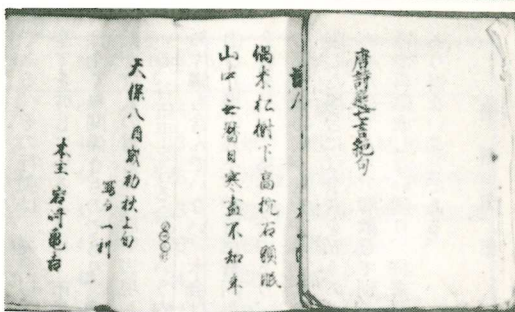 唐詩選七言絶句
偶来松樹下高枕石頭眠
山中無暦日寒盡不知年
天保八酉歳初秋上旬
本主 岩崎亀吉